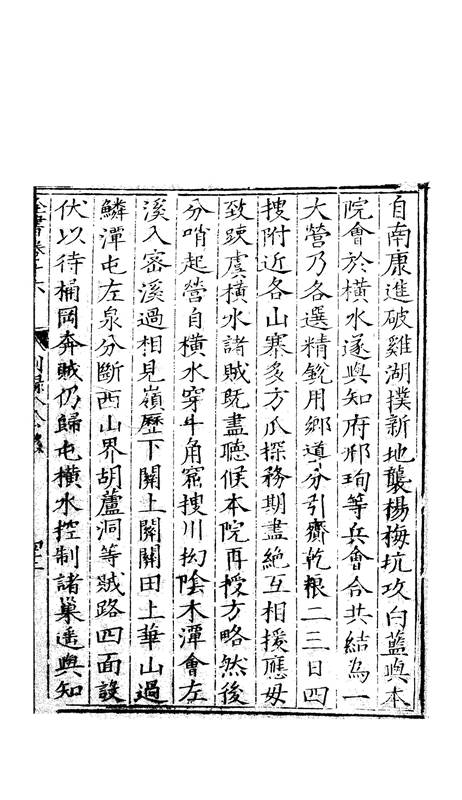 自南康進破雞湖撲新地襲楊梅坑攻白藍與本
院會於橫水遂與知府邢珣等兵會合共結為一
大營乃各選精銳用鄉道分引齎乾糧二三日四
搜附近各山寨多方爪探務期盡絶互相援應毋
致踈虞橫水諸賊既盡聽候本院再授方略然後
分哨起營自橫水穿牛角窟搜川坳陰木潭會左
溪入密溪過相見嶺歷下關上關關田上華山過
鱗潭屯左泉分斷西山界胡蘆洞等賊路四面設
伏以待桶岡奔賊仍歸屯橫水控制諸巢遥與知
全書卷十六
别録八